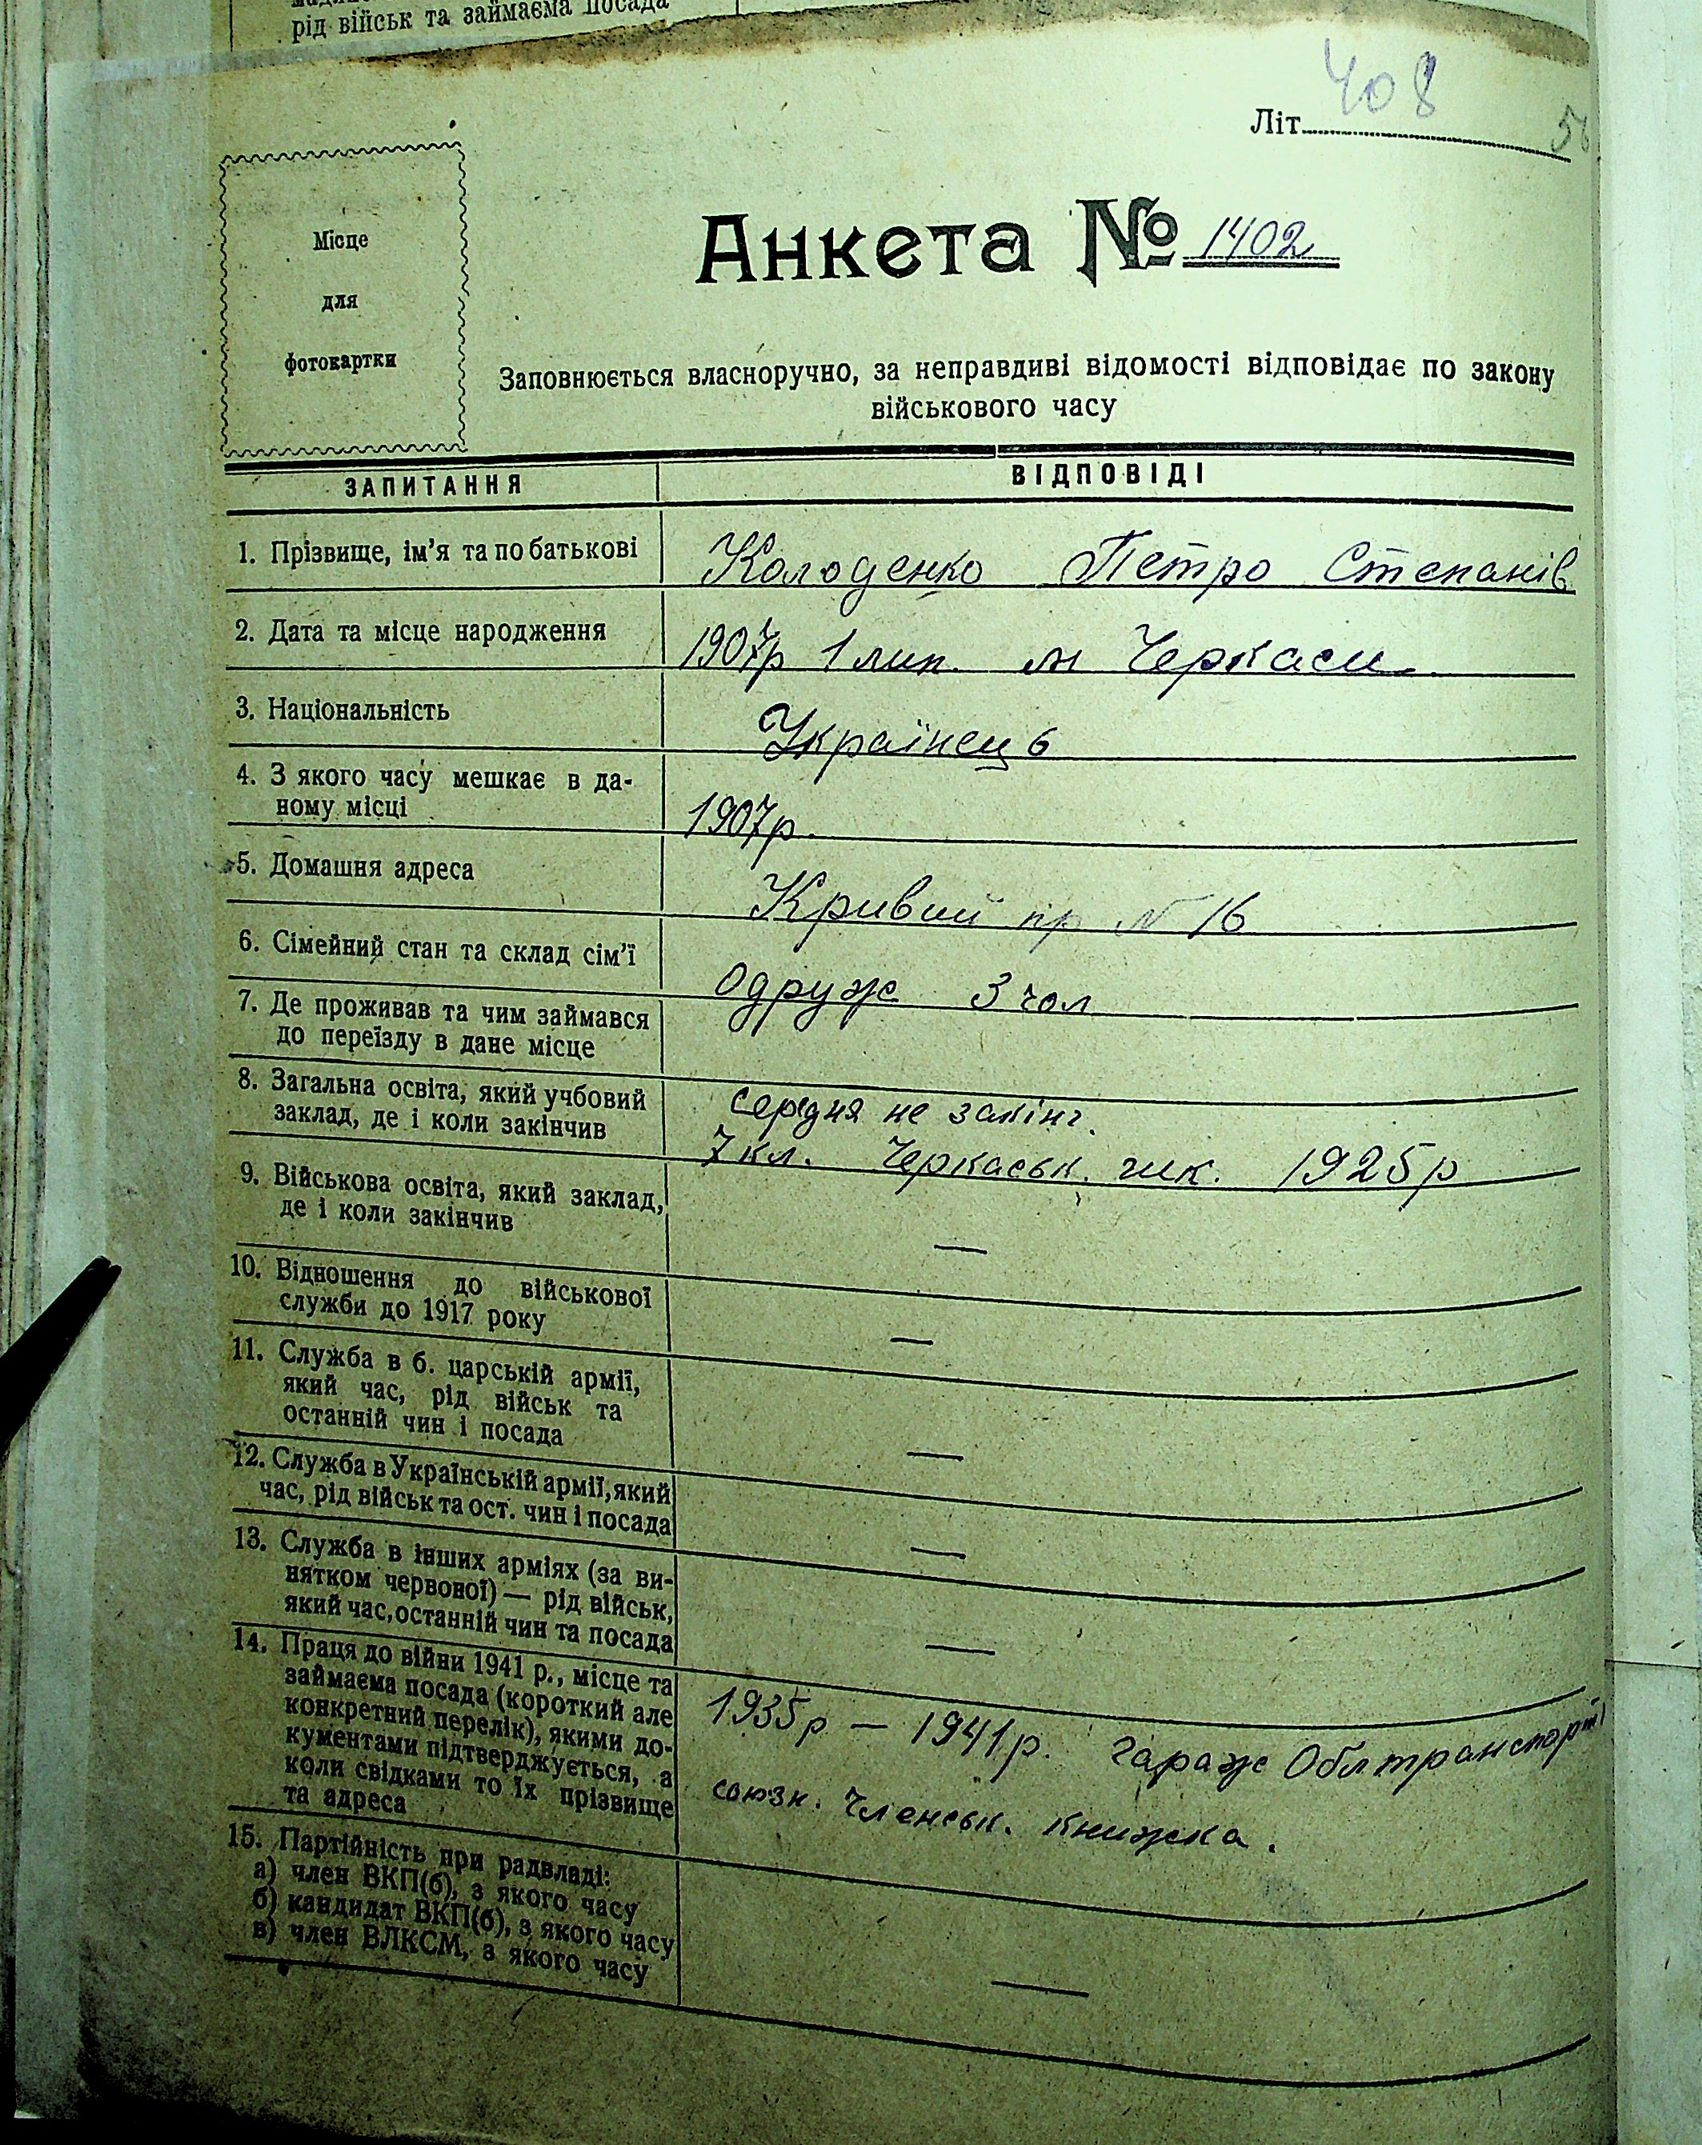 рід військ та займаєма посада
408
Літ.
5
Місце
для
фотокартки
Анкета № 1402
Заповнюється власноручно, за неправдиві відомості відповідає по закону
військового часу
ЗАПИТАННЯ
ВІДПОВІДІ
1. Прізвище, ім'я та по батькові
Колоденко Петро Степанів
2. Дата та місце народження
1907р 1 лип. м Черкаси
3. Національність
Українець
4. З якого часу мешкає в да-
ному місці
1907р.
5. Домашня адреса
Кривий пр № 16
6. Сімейний стан та склад сім'ї
Одруж 3 чол
7. Де проживав та чим займався
до переїзду в дане місце
8. Загальна освіта, який учбовий
заклад, де і коли закінчив
середня не закінч.
7 кл. Черкаськ. шк. 1925р
9. Військова освіта, який заклад,
де і коли закінчив
—
10. Відношення до військової
служби до 1917 року
—
11. Служба в б. царській армії,
який час, рід військ та
останній чин і посада
—
12. Служба в Українській армії, який
час, рід військ та ост. чин і посада
—
13. Служба в інших арміях (за ви-
нятком червоної) — рід військ,
який час, останній чин та посада
—
14. Праця до війни 1941 р., місце та
займаєма посада (короткий але
конкретний перелік), якими до-
кументами підтверджується, а
коли свідками то їх прізвище
та адреса
1935р — 1941р. гараж Облтранспорті
союзн. Членськ. книжка.
15. Партійність при радвладі:
а) член ВКП(б), з якого часу
б) кандидат ВКП(б), з якого часу
в) член ВЛКСМ, з якого часу
—